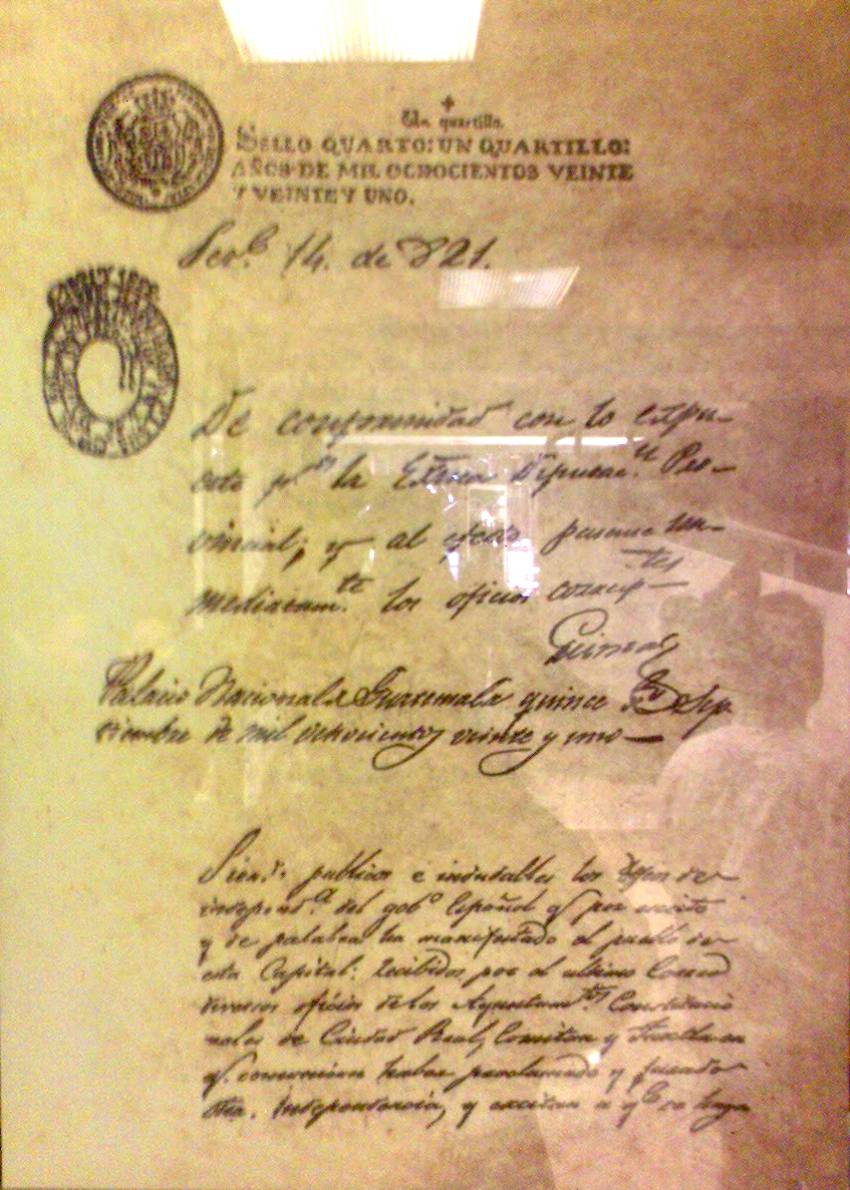 Un quartillo.
SELLO QUARTO: UN QUARTILLO:
AÑOS DE MIL OCHOCIENTOS VEINTE
Y VEINTE Y UNO.
14. de 821.
De conformidad con lo expu-
esto pr. la Exma Diputac.n Pro-
vincial; y al efecto pasense in-
mediatam.te los oficios corresp-
tes
Palacio Nacional de Guatemala quince de Sep
tiembre de mil ochocientos veinte y uno—
Siend.o publicos e indudables los deseos de
independ.a del gob.o Español q.e por escrito
y de palabra ha manifestado el pueblo de
esta Capital: recibidos por el ultimo Correo
diversos oficios de los Ayuntam.tos Constitucio
nales de Ciudad Real, Comitan y Tuxtla en
q.e comunican haber proclamado y jurado
dha. Independencia, y excitan a q.e se haga